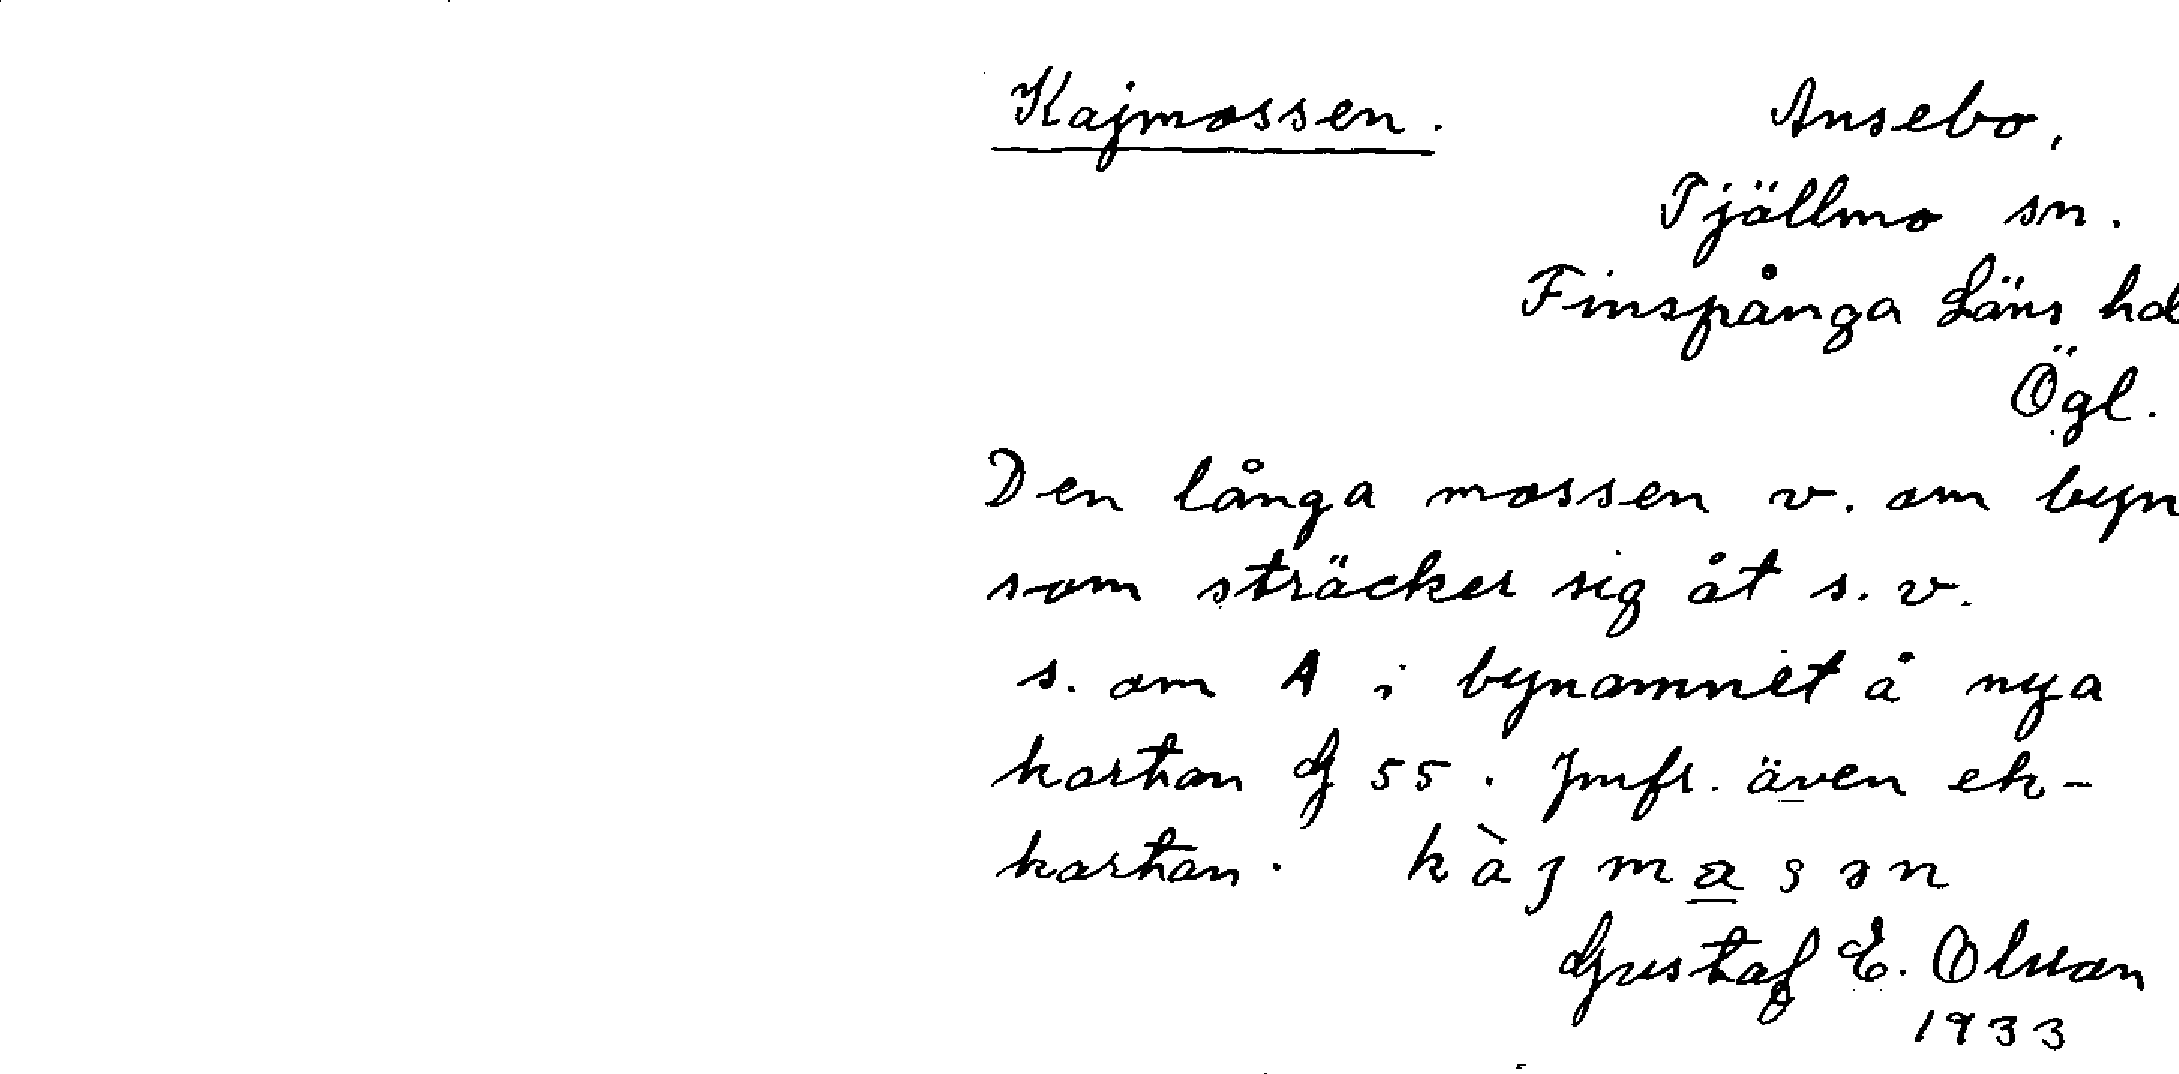 Kajmossen. Ansebo,
Tjällmo sn.
Finspånga Läns hd
Ögl.
Den långa mossen v. om byn
som sträcker sig åt s.v.
s. om A i bynamnet å nya
kartan G 55. Jmfr. även ek-
kartan. kàjmasən
Gustaf E. Olsson
1933